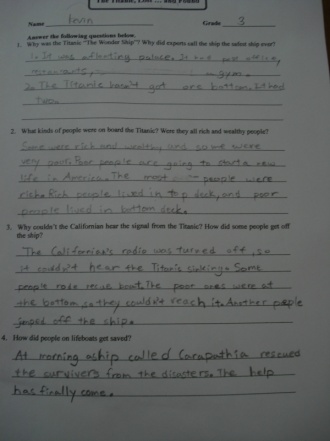 The Titanic, Lost ... and Found
Name Kevin Grade 3
Answer the following questions below.
1. Why was the Titanic "The Wonder Ship"? Why did experts call the ship the safest ship ever?
It was afloating palace. It post office,
gym.
2. The Titanic hasn't got one bottom. It had
two.
2. What kinds of people were on board the Titanic? Were they all rich and wealthy people?
Some were rich and wealthy and some were
very poor. Poor people are going to start a new
life in America. The most people were
rich. Rich people lived in top deck, and poor
people lived in bottom deck.
3. Why couldn't the Californian hear the signal from the Titanic? How did some people get off
the ship?
The Californian's radio was turned off, so
it couldn't hear the Titanic sinking. Some
people rode recue boat. The poor ones were at
the bottom, so they couldn't reach it. Another people
jumped off the ship.
4. How did people on lifeboats get saved?
At morning a ship called Carapathia rescued
the survivers from the disasters. The help
has finally come.